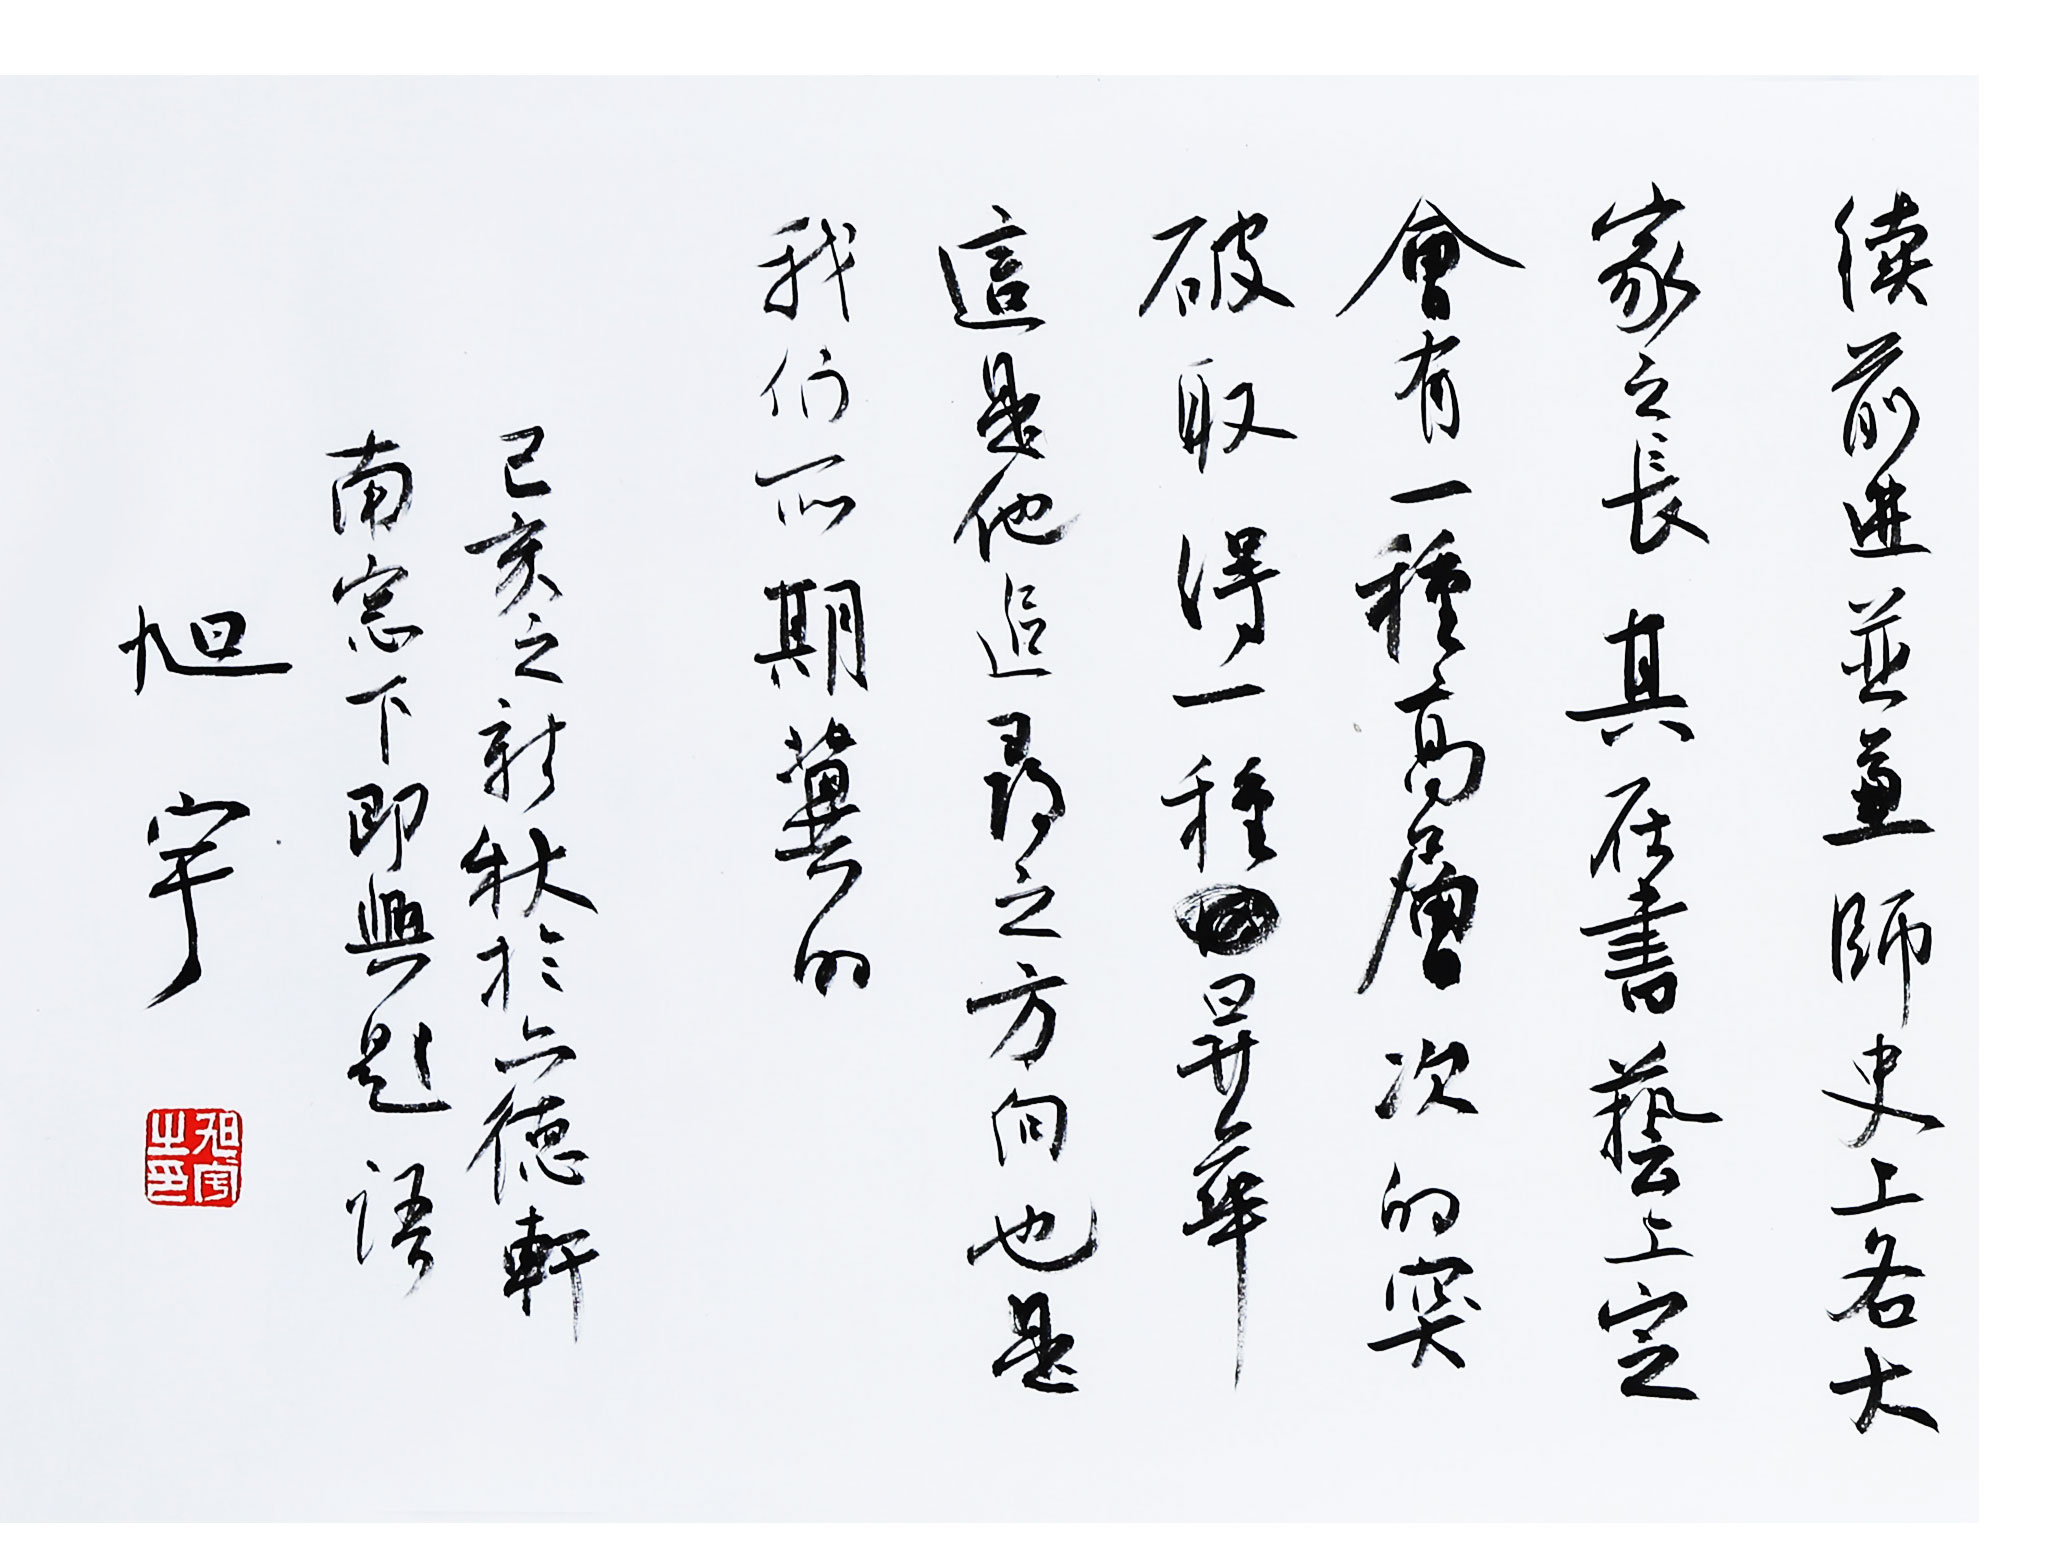 续前进並兼師史上各大
家之長其在書藝上定
會有一種高層次的突
破取得一種昇華
這是他追尋之方向也是
我们所期冀的
己亥之新秋於六德軒
南窓下即興题語
旭宇
旭宇之印